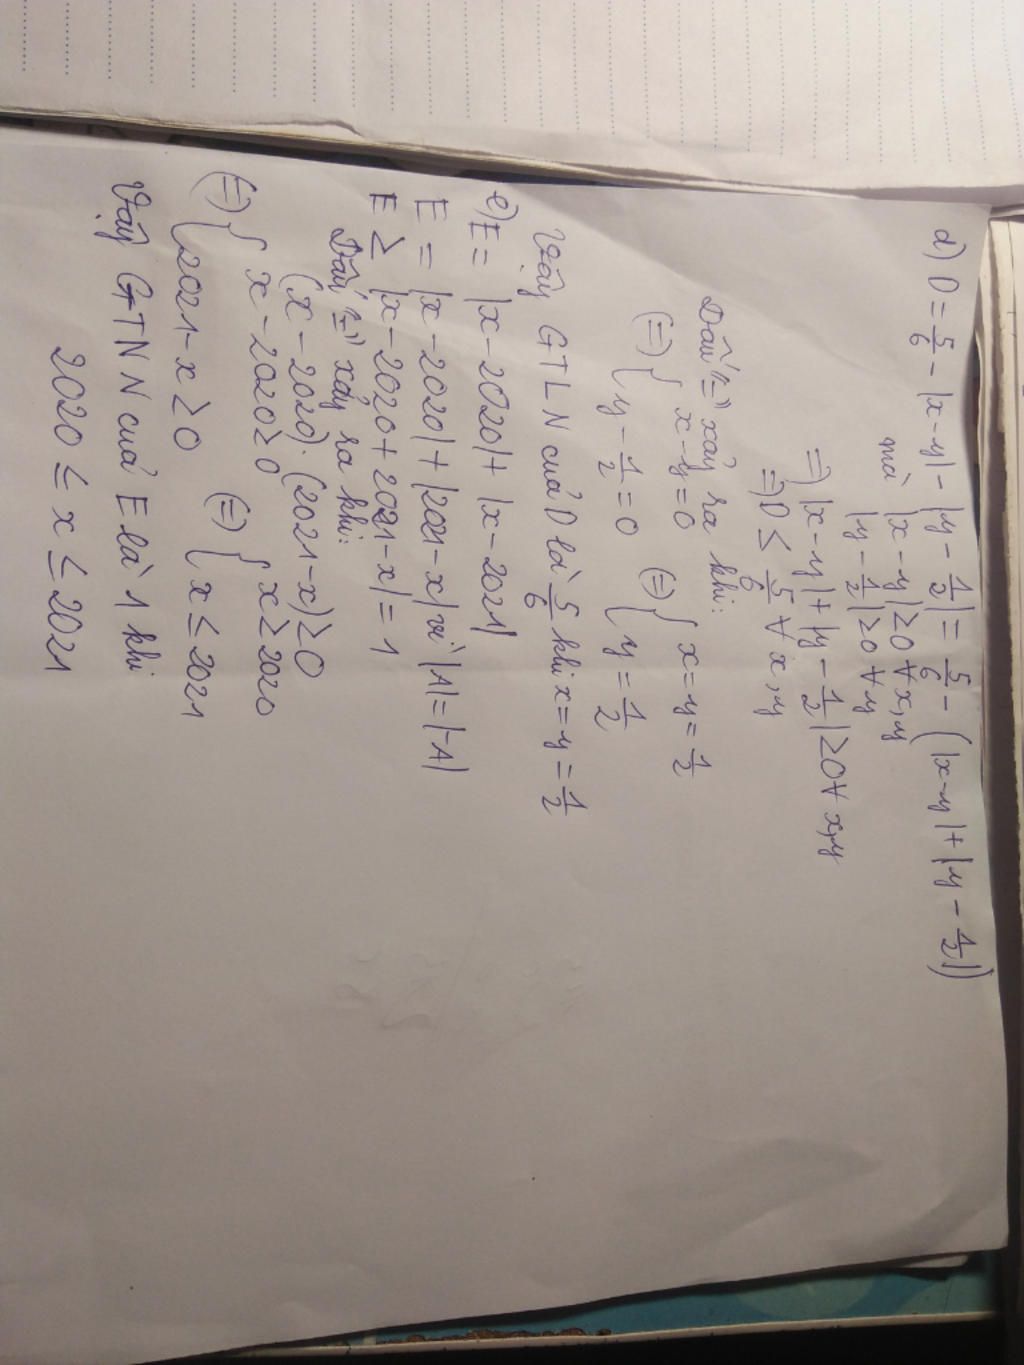 d) D = 5/6 - |x-y| - |y - 1/2| = 5/6 - (|x-y| + |y - 1/2|)
mà |x-y| ≥0 ∀x,y
|y - 1/2| ≥0 ∀y
=) |x-y| + |y - 1/2| ≥0 ∀ x,y
=) D ≤ 5/6 ∀ x,y
Dấu "=" xảy ra khi:
(=) { x-y=0 (=) { x=y=1/2
y - 1/2 = 0 y = 1/2
Vậy GTLN của D là 5/6 khi x=y=1/2
e) E = |x-2020| + |x-2021|
E = |x-2020| + |2021-x| vì |A|=|-A|
E ≥ |x-2020+2021-x| = 1
Dấu "=" xảy ra khi:
(x-2020).(2021-x)≥0
(=) { x-2020≥0 (=) { x≥2020
2021-x≥0 x≤2021
Vậy GTNN của E là 1 khi
2020 ≤ x ≤ 2021